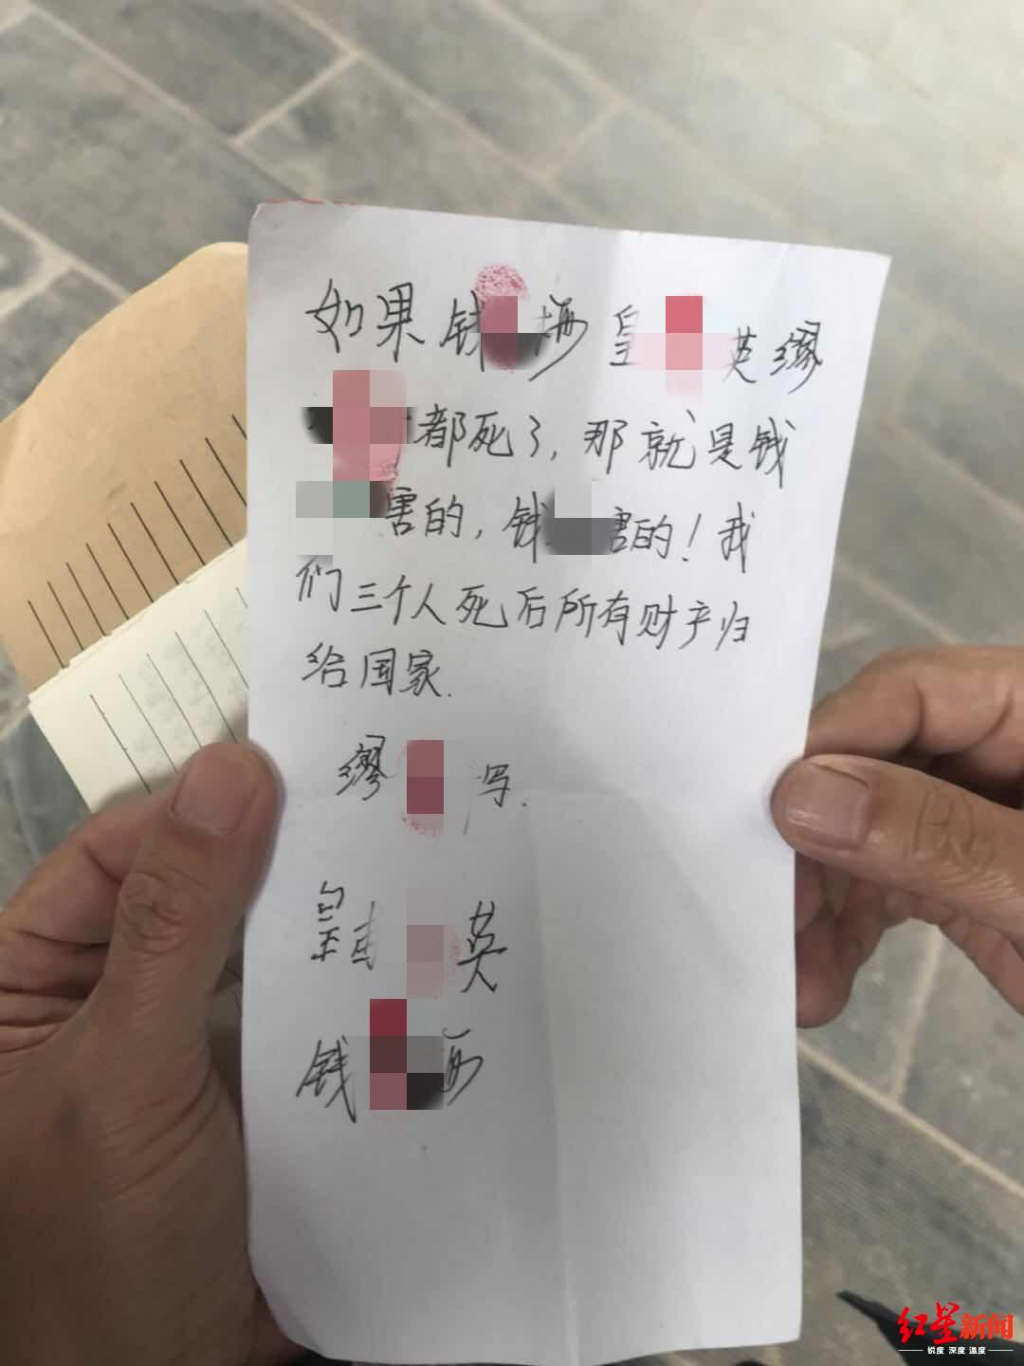 如果钱梅皇英缪
都死了，那就是钱
害的，钱害的！我
们三个人死后所有财产归
给国家.
缪写.
皇英
钱
红星新闻
锐度 深度 温度